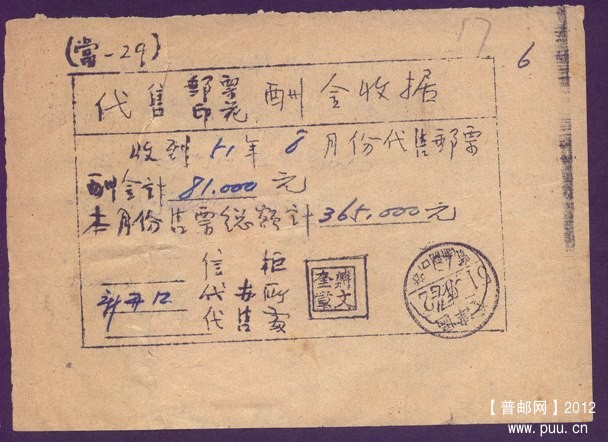 (當-29)
17
6
代售郵票印花酬金收据
收到51年8月份代售郵票
酬金計81.000元
本月份售票總額計365.000元
信柜
代办所
代售處
【普邮网】2012
www.puu.cn